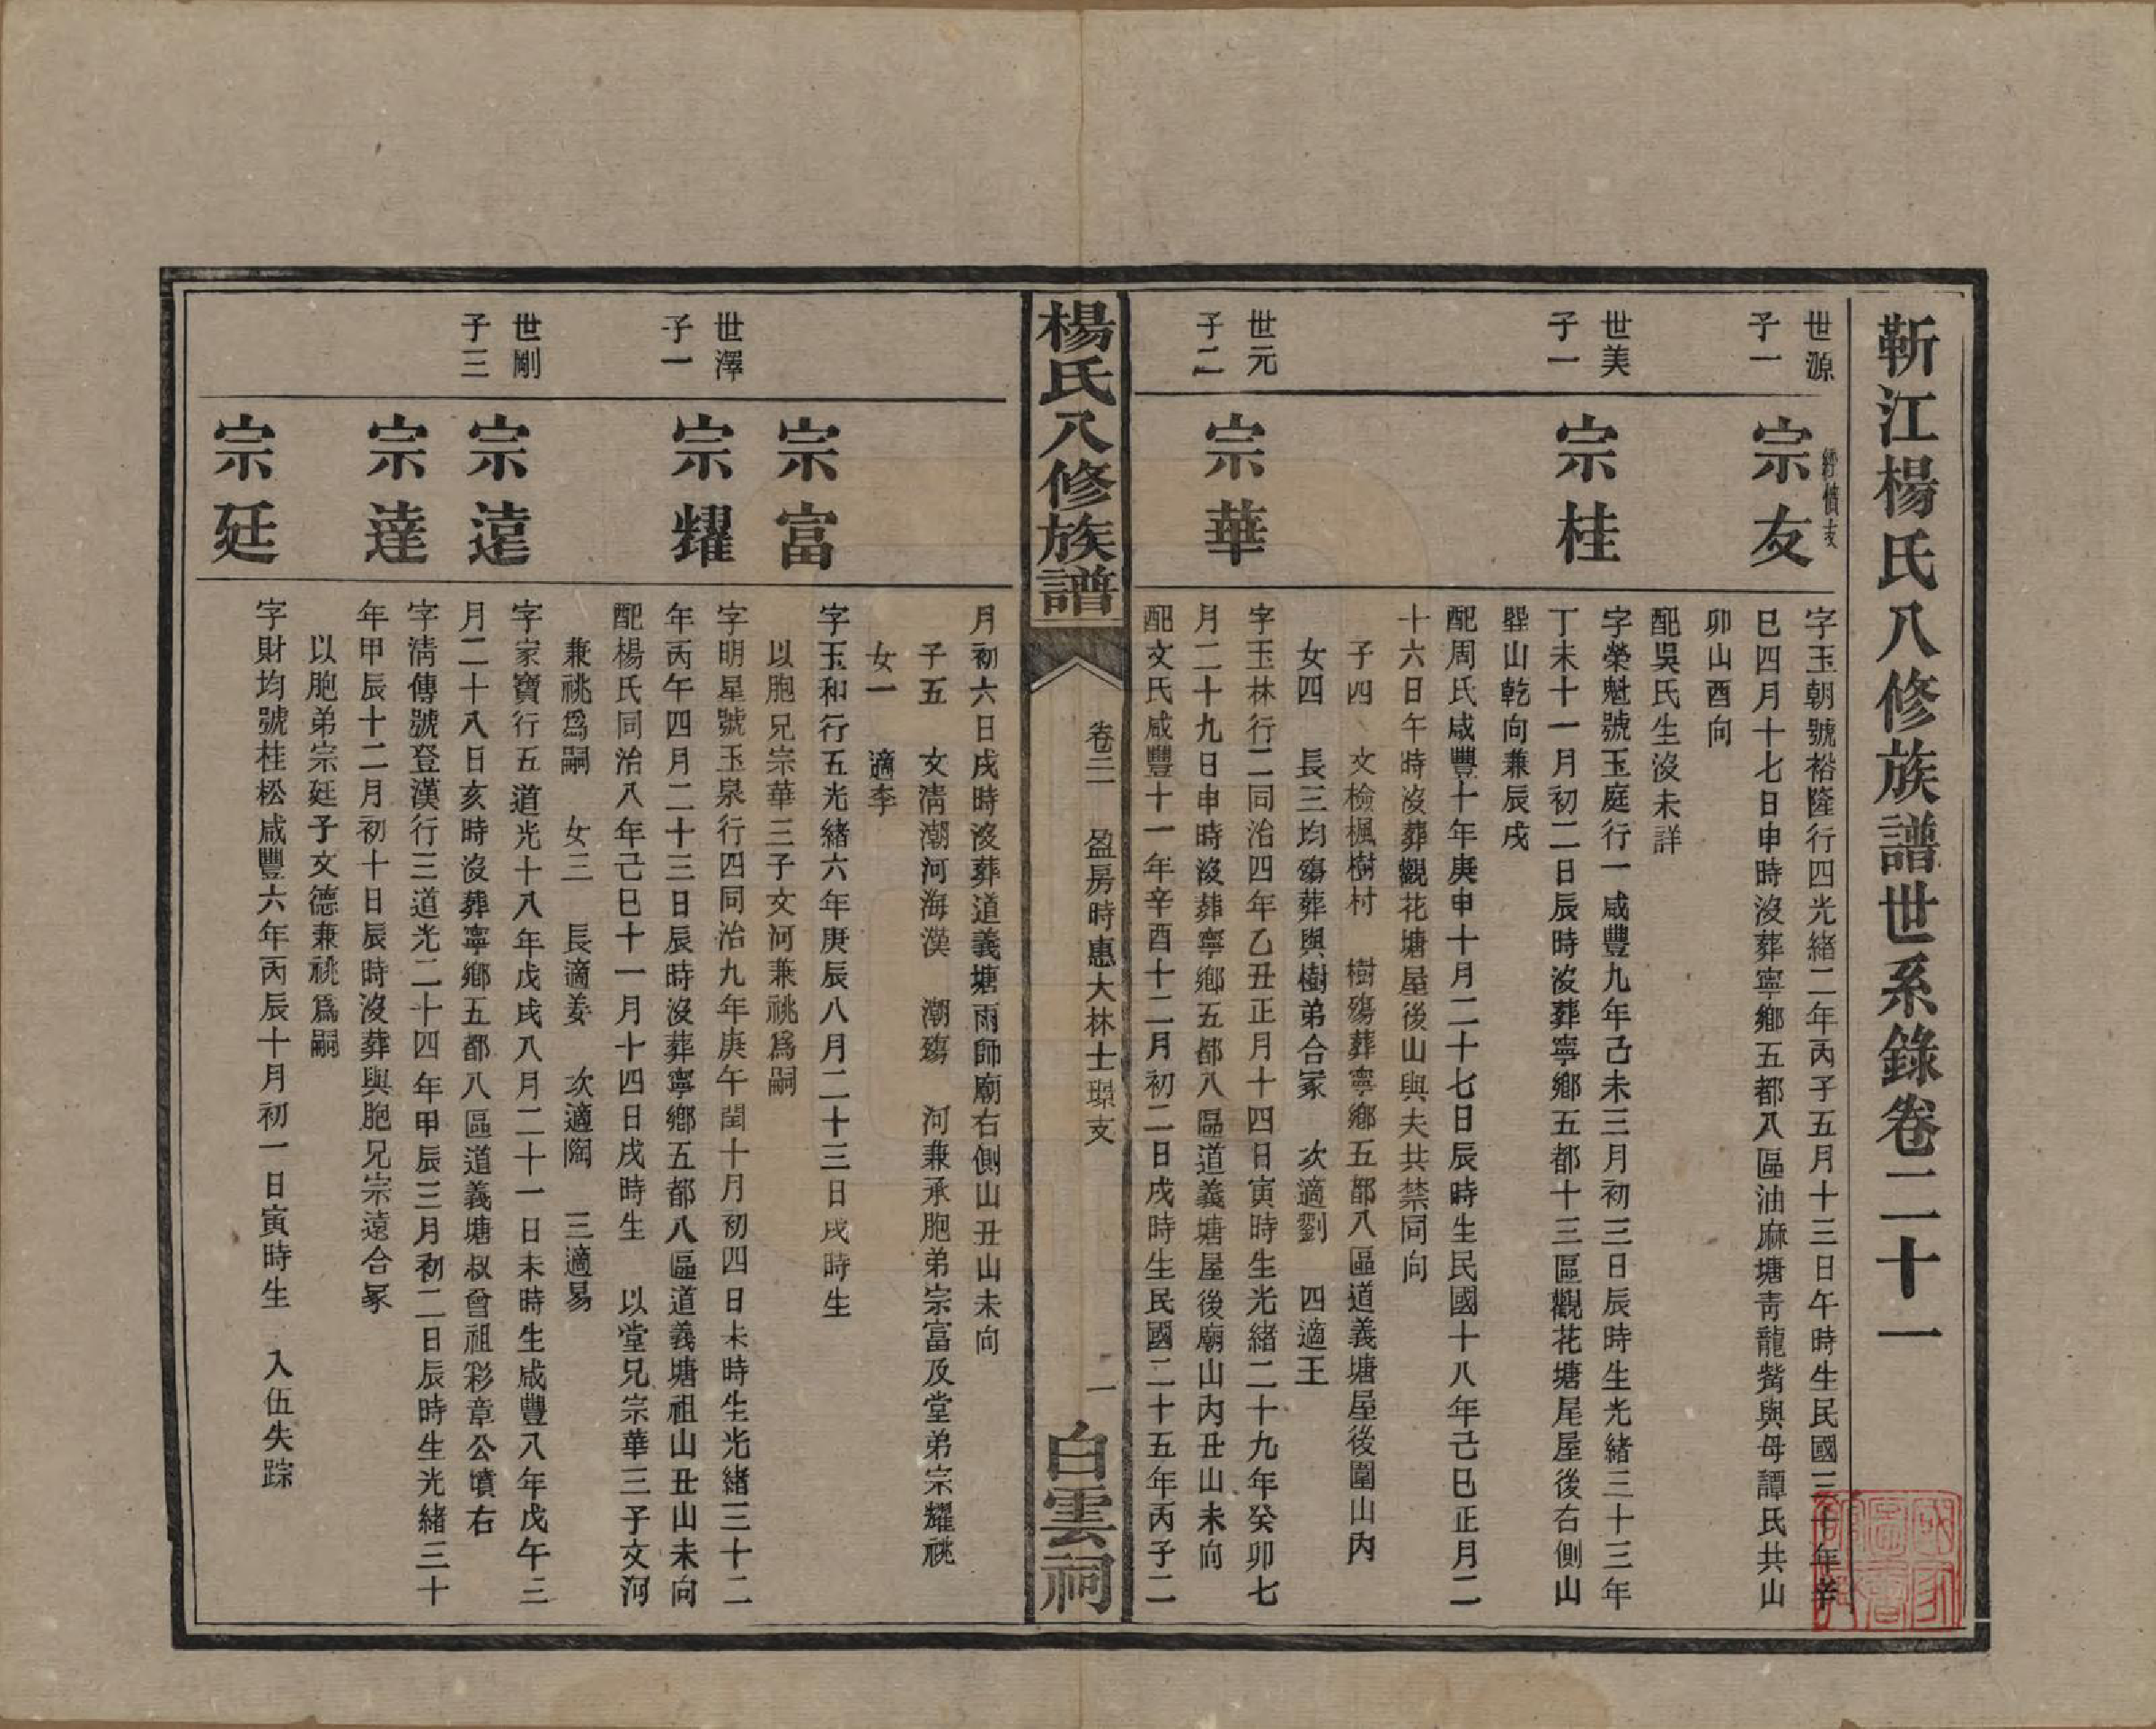 靳江楊氏八修族譜世系錄卷二十一
世源
子一
宗友
字玉朝號裕隆行四光緒二年丙子五月十三日午時生民國三十年辛
巳四月十七日申時沒葬寧鄉五都八區油麻塘青龍嘴與母譚氏共山
卯山酉向
配吳氏生沒未詳
世美
子一
宗桂
字榮魁號玉庭行一咸豐九年己未三月初三日辰時生光緒三十三年
丁未十一月初二日辰時沒葬寧鄉五都十三區觀花塘屋後右側山
巽山乾向兼辰戌
配周氏咸豐十年庚申十月二十七日辰時生民國十八年己巳正月二
十六日午時沒葬觀花塘屋後山與夫共禁同向
子四 文檢楓樹村 樹殤葬寧鄉五都八區道義塘屋後圍山內
女四 長三均殤葬與樹弟合冢 次適劉 四適王
世元
子二
宗華
字玉林行二同治四年乙丑正月十四日寅時生光緒二十九年癸卯七
月二十九日申時沒葬寧鄉五都八區道義塘屋後廟山內丑山未向
配文氏咸豐十一年辛酉十二月初二日戌時生民國二十五年丙子二
楊氏八修族譜
卷二 盈房時惠大林士璟支
一
白雲祠
月初六日戌時沒葬道義塘雨師廟右側山丑山未向
子五 文清潮河海漢 潮殤 河兼承胞弟宗富及堂弟宗耀祧
女一 適李
宗富
字玉和行五光緒六年庚辰八月二十三日戌時生
以胞兄宗華三子文河兼祧爲嗣
世澤
子一
宗耀
字明星號玉泉行四同治九年庚午閏十月初四日未時生光緒三十二
年丙午四月二十三日辰時沒葬寧鄉五都八區道義塘祖山丑山未向
配楊氏同治八年己巳十一月十四日戌時生 以堂兄宗華三子文河
兼祧爲嗣 女三 長適姜 次適陶 三適易
世剛
子三
宗遠
字家寶行五道光十八年戊戌八月二十一日未時生咸豐八年戊午三
月二十八日亥時沒葬寧鄉五都八區道義塘叔曾祖彩章公墳右
宗達
字清傳號登漢行三道光二十四年甲辰三月初二日辰時生光緒三十
年甲辰十二月初十日辰時沒葬與胞兄宗遠合冢
以胞弟宗廷子文德兼祧爲嗣
宗廷
字財均號桂松咸豐六年丙辰十月初一日寅時生 入伍失踪